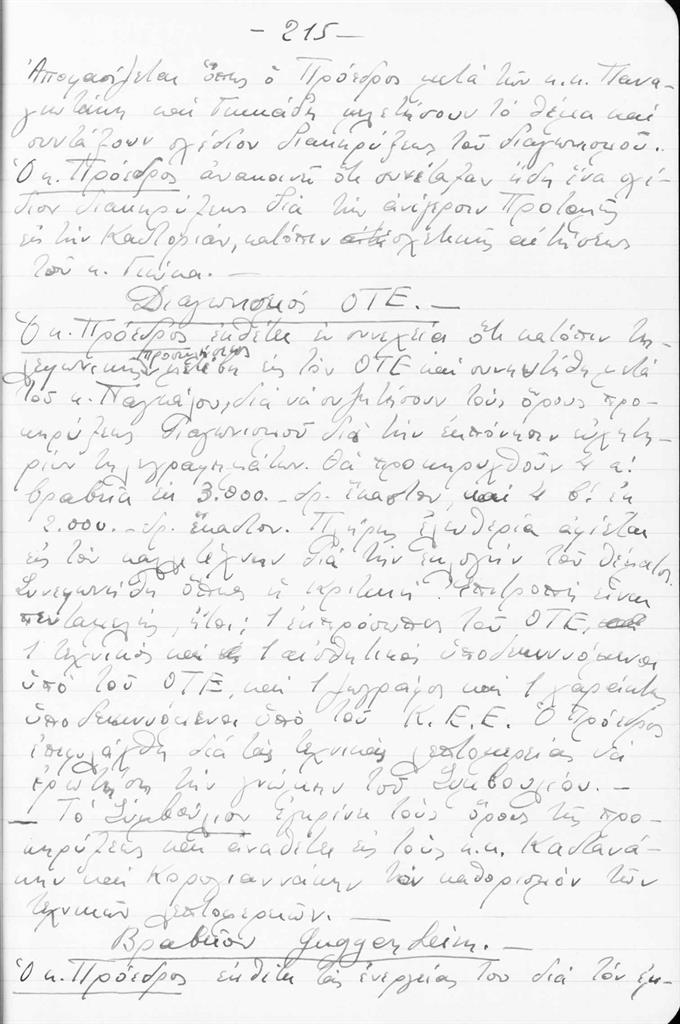 - 215 -
Ἀποφασίζεται ὅπως ὁ Πρόεδρος μετὰ τῶν κ.κ. Πανα-
γιωτάκη καὶ μελετήσουν τὸ θέμα καὶ
συντάξουν σχέδιον διακηρύξεως τοῦ διαγωνισμοῦ.
Ὁ κ. Πρόεδρος ἀνακοινοῖ ὅτι συνέταξαν ἤδη ἕνα σχέ-
διον διακηρύξεως διὰ τὴν ἀνέγερσιν Προτομῆς
εἰς τὴν Καστοριάν, κατόπιν σχετικῆς αἰτήσεως
τοῦ κ. Γκύκα. -
Διαγωνισμός ΟΤΕ. -
Ὁ κ. Πρόεδρος ἐκθέτει ἐν συνεχείᾳ ὅτι κατόπιν τη-
λεφωνικῆς προσκλήσεως μετέβη εἰς τὸν ΟΤΕ καὶ συνηντήθη μετὰ
τοῦ κ. διὰ νὰ συζητήσουν τοὺς ὅρους προ-
κηρύξεως διαγωνισμοῦ διὰ τὴν ἐκπόνησιν εὐχετη-
ρίων τηλεγραφημάτων. Θὰ προκηρυχθοῦν 4 α!
βραβεῖα ἐκ 3.000.- δρ. ἕκαστον, καὶ 4 β! ἐκ
2.000.- δρ. ἕκαστον. Πλήρης ἐλευθερία ἀφίεται
εἰς τὸν καλλιτέχνην διὰ τὴν ἐκλογὴν τοῦ θέματος.
Συνεφωνήθη ὅπως ἡ κριτικὴ ἐπιτροπὴ εἶναι
πενταμελής, ἤτοι: 1 ἐκπρόσωπος τοῦ ΟΤΕ,
1 τεχνικὸς καὶ 1 αἰσθητικὸς ὑποδεικνυόμενοι
ὑπὸ τοῦ ΟΤΕ, καὶ 1 ζωγράφος καὶ 1 χαράκτης
ὑποδεικνυόμενοι ὑπὸ τοῦ Κ.Ε.Ε. Ὁ Πρόεδρος
ἐπεφυλάχθη διὰ τὰς τεχνικὰς λεπτομερείας νὰ
ἐρωτήσῃ τὴν γνώμην τοῦ Συμβουλίου. -
- Τὸ Συμβούλιον ἐγκρίνει τοὺς ὅρους τῆς προ-
κηρύξεως καὶ ἀναθέτει εἰς τοὺς κ.κ. Καστανά-
κην καὶ Κορογιαννάκην τὸν καθορισμὸν τῶν
τεχνικῶν λεπτομερειῶν. -
Βραβεῖον Guggenheim. -
Ὁ κ. Πρόεδρος ἐκθέτει τὰς ἐνεργείας του διὰ τὸν ἐκ-